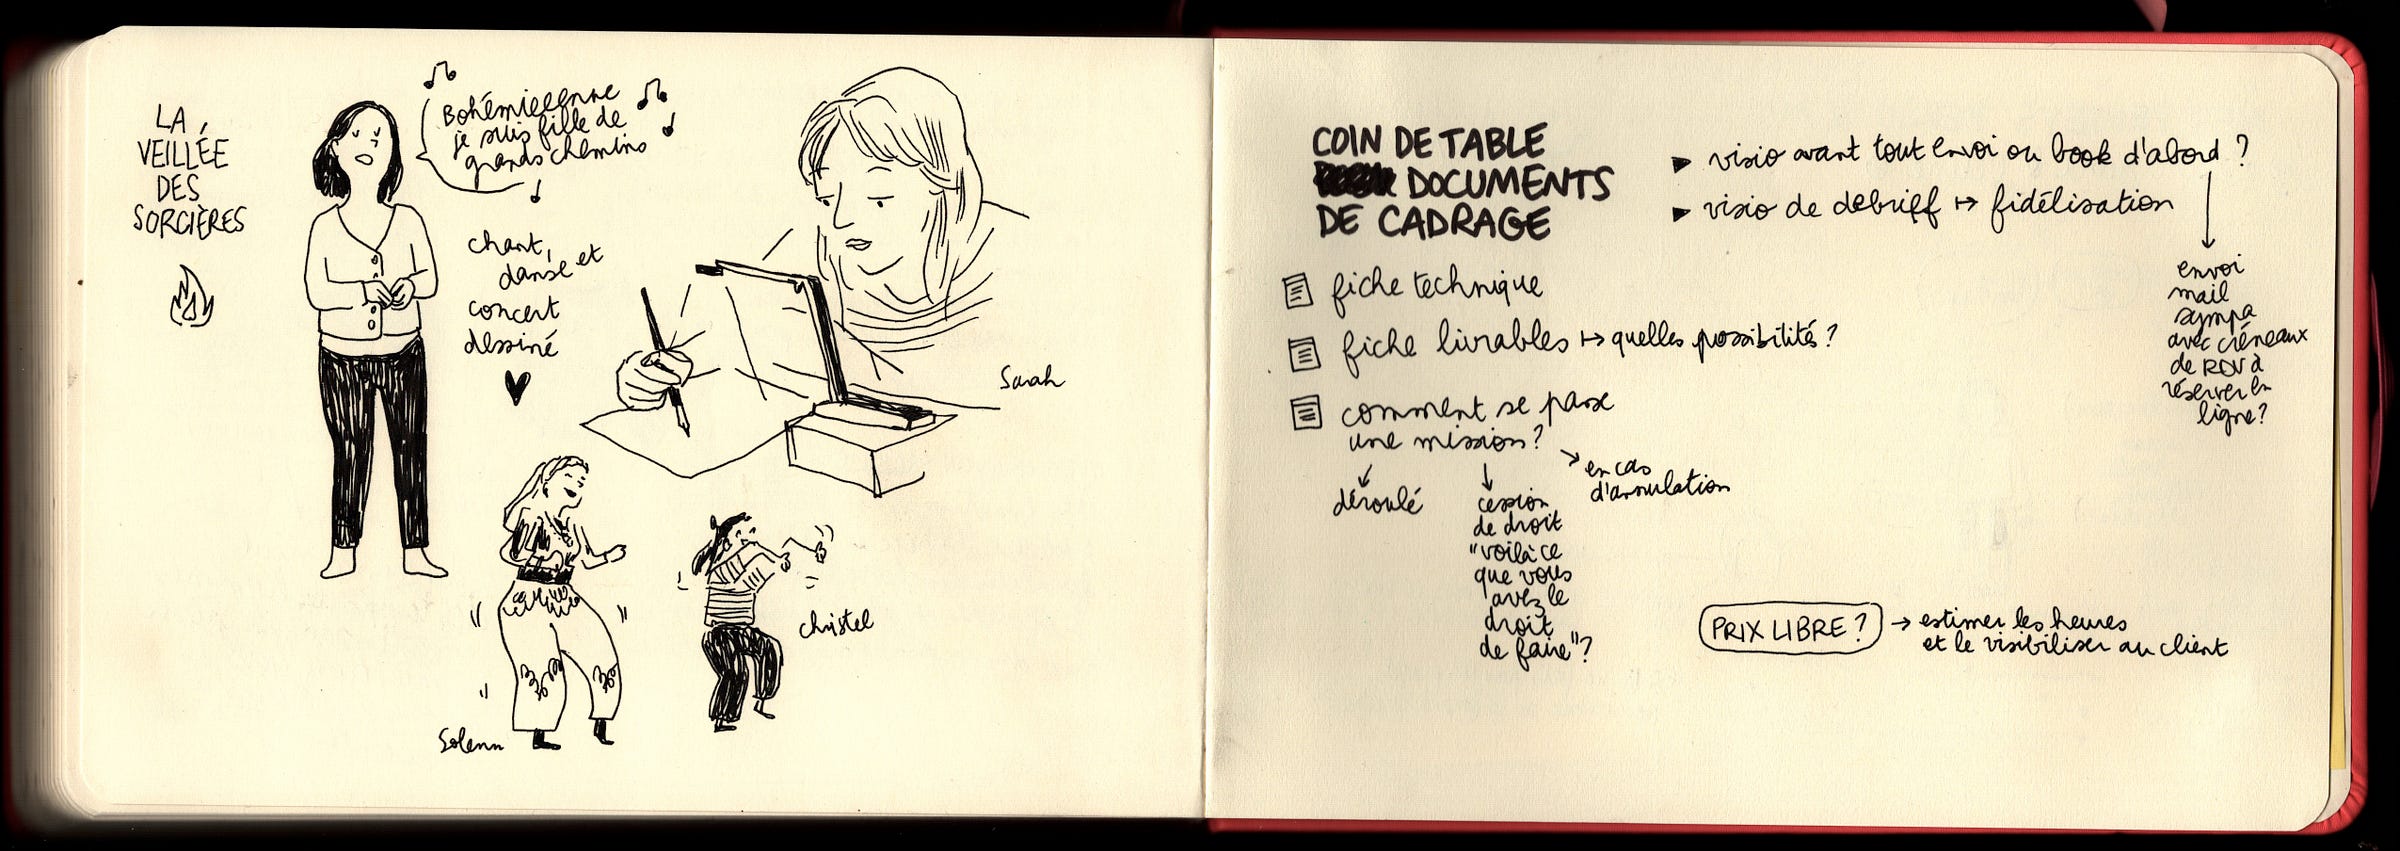 LA
VEILLÉE
DES
SORCIÈRES
Bohémieeenne
je suis fille de
grands chemins
chant,
danse et
concert
dessiné
Sarah
Solenn
christel
COIN DE TABLE
DOCUMENTS
DE CADRAGE
fiche technique
fiche livrables ↦ quelles possibilités?
comment se passe
une mission?
déroulé
cession
de droit
"voilà ce
que vous
avez le
droit
de faire"?
en cas
d'annulation
► visio avant tout envoi ou book d'abord ?
► visio de débrief ↦ fidélisation
envoi
mail
sympa
avec créneaux
de RDV à
réserver en
ligne?
PRIX LIBRE ? → estimer les heures
et le visibiliser au client